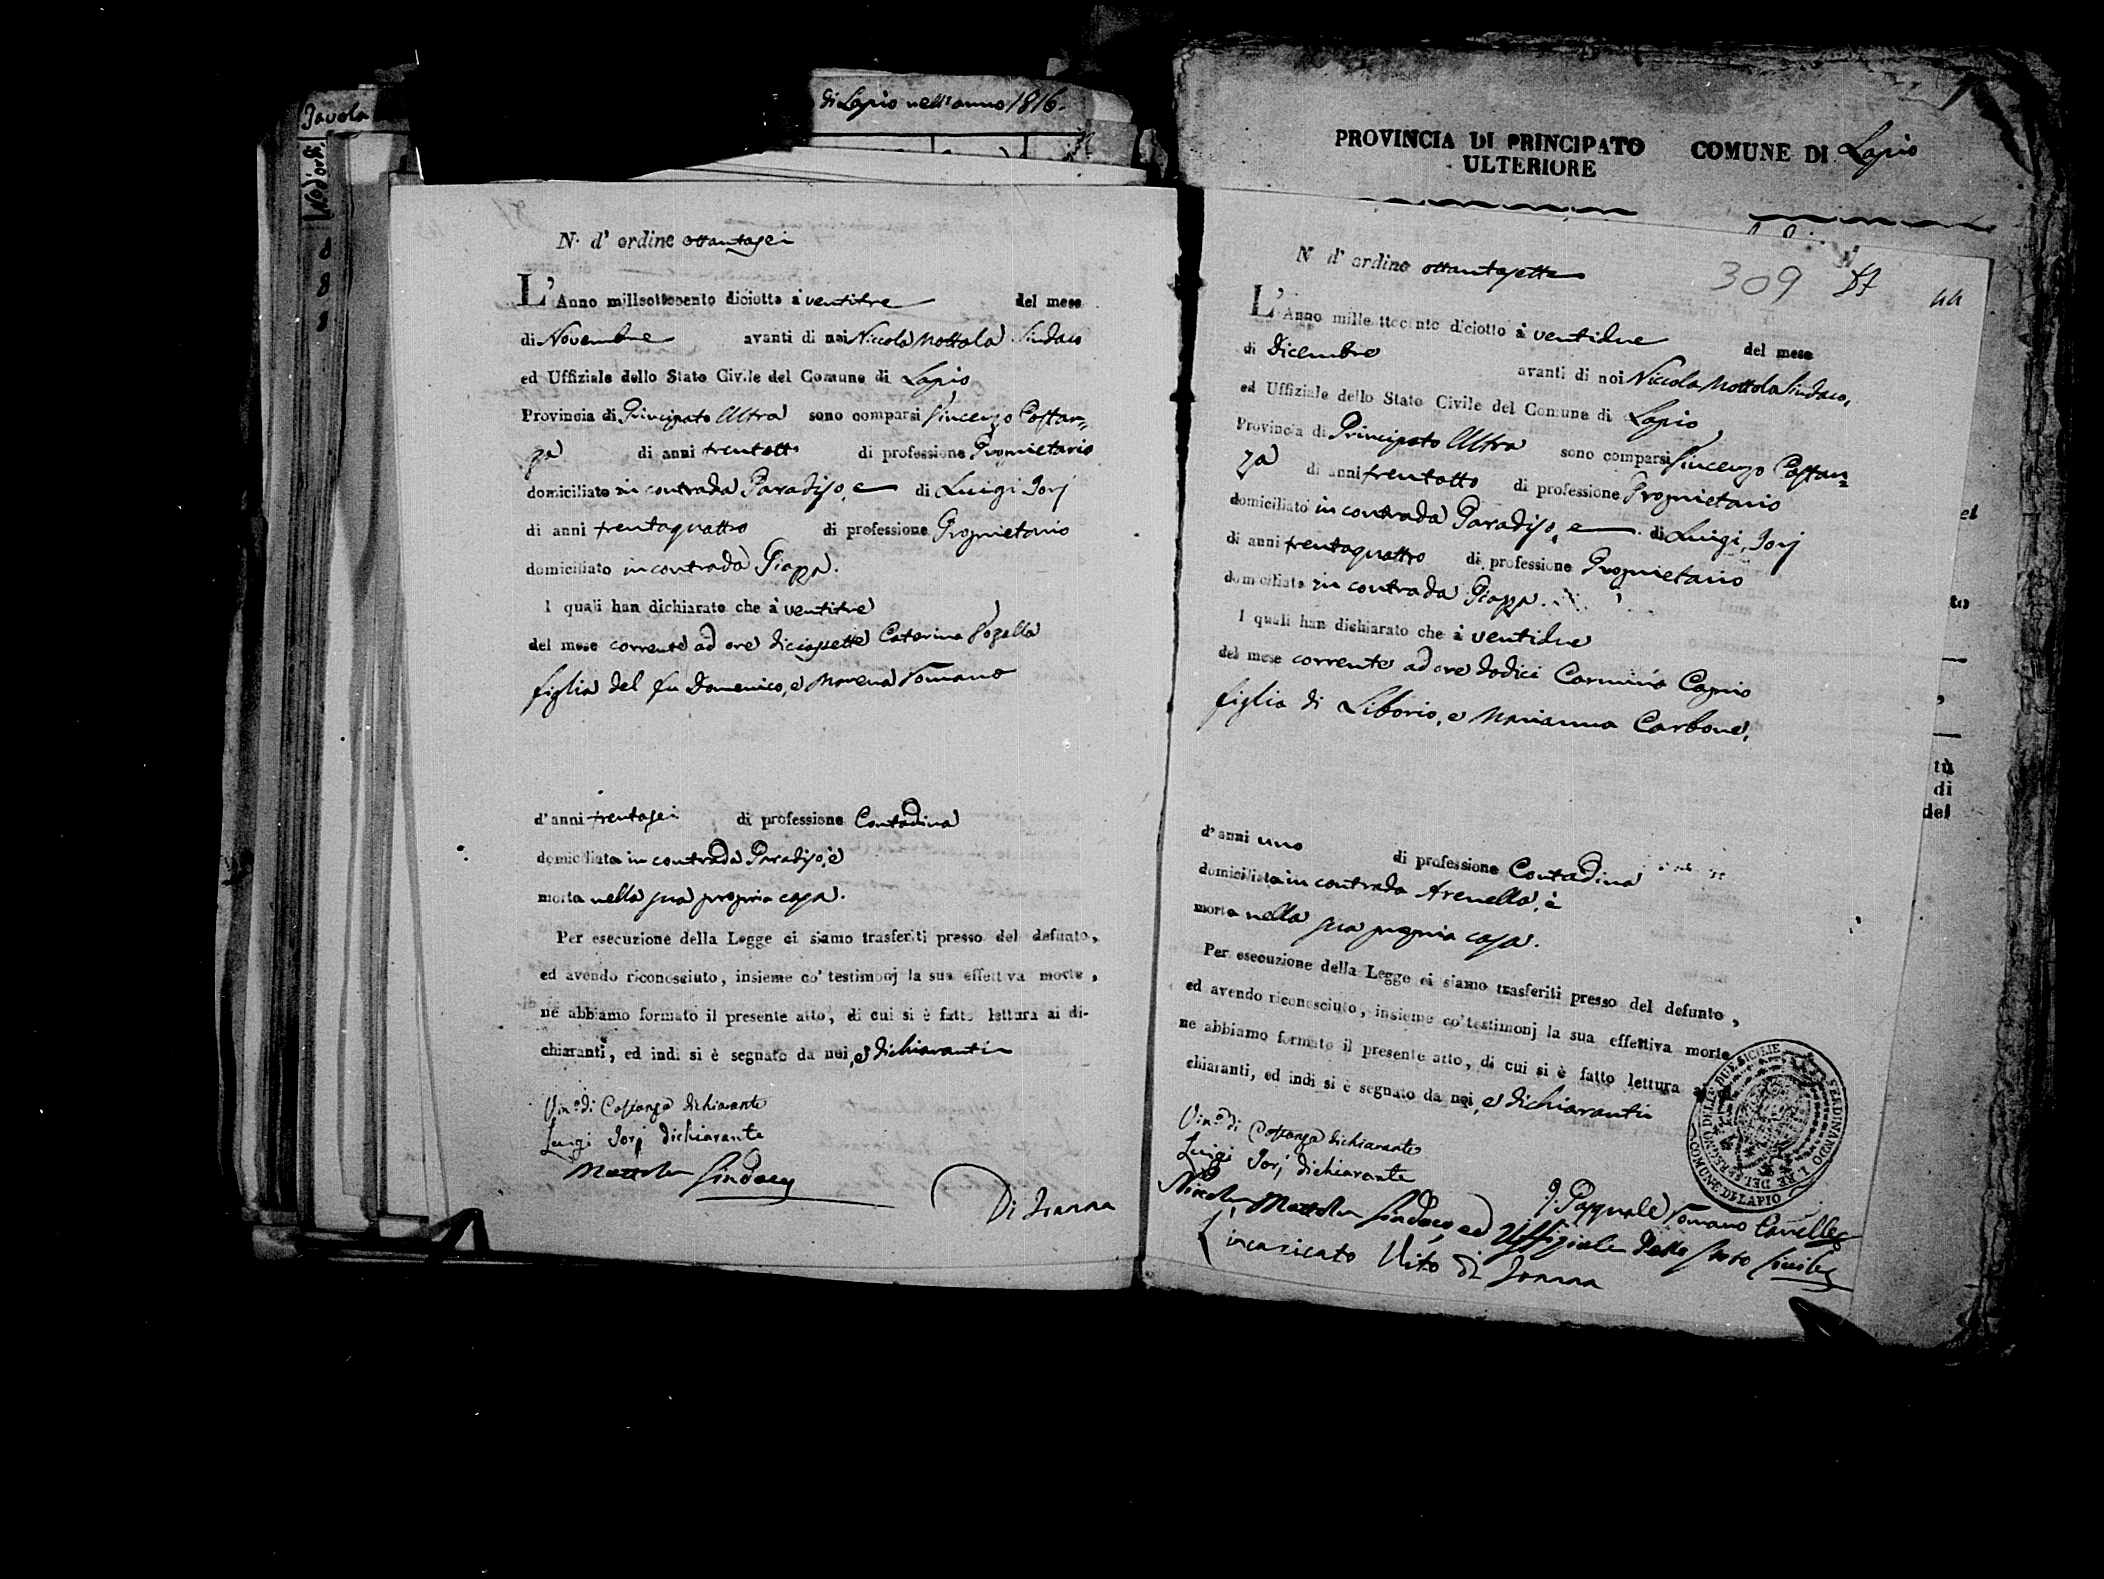 Tavola
di Lapio nell'anno 1816.
N. d'ord.
N. d' ordine ottantasei
L'Anno milleottocento diciotto à ventitre del mese
di Novembre avanti di noi Niccola Mottola Sindaco
ed Uffiziale dello Stato Civile del Comune di Lapio
Provincia di Principato Ultra sono comparsi Vincenzo Costan=
za di anni trentotto di professione Proprietario
domiciliato in contrada Paradiso, e di Luigi Jorj
di anni trentaquattro di professione Proprietario
domiciliato in contrada Piazza.
I quali han dichiarato che à ventitre
del mese corrente ad ore diciasette Caterina
figlia del fu Domenico, e Romano
d'anni trentasei di professione Contadina
domiciliata in contrada Paradiso, è
morta nella sua propria casa.
Per esecuzione della Legge ci siamo trasferiti presso del defunto,
ed avendo riconosciuto, insieme co' testimonj la sua effettiva morte,
ne abbiamo formato il presente atto, di cui si è fatto lettura ai di-
chiaranti, ed indi si è segnato da noi, e dichiaranti
Vin.o di Costanza dichiarante
Luigi Jorj dichiarante
Mottola Sindaco
Di Ioanna
PROVINCIA DI PRINCIPATO COMUNE DI Lapio
ULTERIORE
N d' ordine ottantasette
309 87 44
L'Anno milleottocento diciotto à ventidue del mese
di Dicembre avanti di noi Niccola Mottola Sindaco,
ed Uffiziale dello Stato Civile del Comune di Lapio
Provincia di Principato Ultra sono comparsi Vincenzo Costan=
za di anni trentotto di professione Proprietario
domiciliato in contrada Paradiso, e di Luigi Jorj
di anni trentaquattro di professione Proprietario
domiciliato in contrada Piazza.
I quali han dichiarato che à ventidue
del mese corrente ad ore dodici Carmina Caprio
figlia di Liborio, e Marianna Carbone,
d'anni uno di professione Contadina
domiciliata in contrada Arenella, è
morta nella sua propria casa.
Per esecuzione della Legge ci siamo trasferiti presso del defunto,
ed avendo riconosciuto, insieme co' testimonj la sua effettiva morte
ne abbiamo formato il presente atto, di cui si è fatto lettura ai
chiaranti, ed indi si è segnato da noi, e dichiaranti
Vin.o di Costanza dichiarante
Luigi Jorj dichiarante
Niccola Mottola Sindaco, ed Uffiziale dello Stato Civile
Pasquale Romano Cancelliere
L'incaricato Vito di Ioanna
FERDINANDO I. RE DEL REGNO DELLE DUE SICILIE
COMUNE DI LAPIO
el
to
tù
di
del